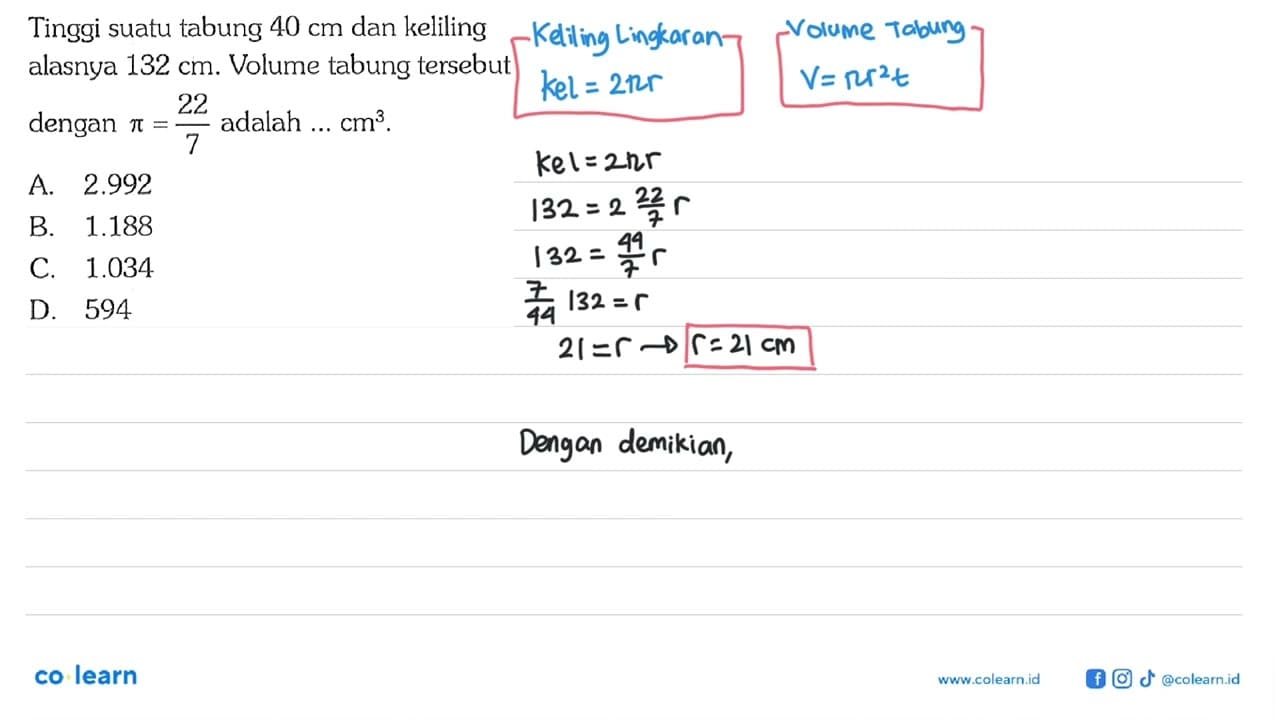 Tinggi suatu tabung 40 cm dan keliling
alasnya 132 cm. Volume tabung tersebut
dengan π = 22/7 adalah ... cm³.
A. 2.992
B. 1.188
C. 1.034
D. 594
Keliling Lingkaran
kel = 2πr
Volume Tabung
V = πr²t
kel = 2πr
132 = 2 22/7 r
132 = 44/7 r
7/44 132 = r
21 = r → r = 21 cm
Dengan demikian,
co learn
www.colearn.id
@colearn.id